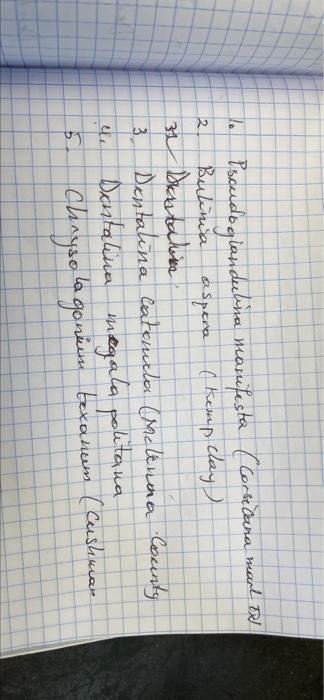 1. Pseudoglandulina manifesta (Corsicana marl TX)
2. Bulimia aspera (Kemp Clay)
3. Dentalina catenula (McLennan County
4. Dentalina megalapolitana
5. Chrysolagonium texanum (Cushman